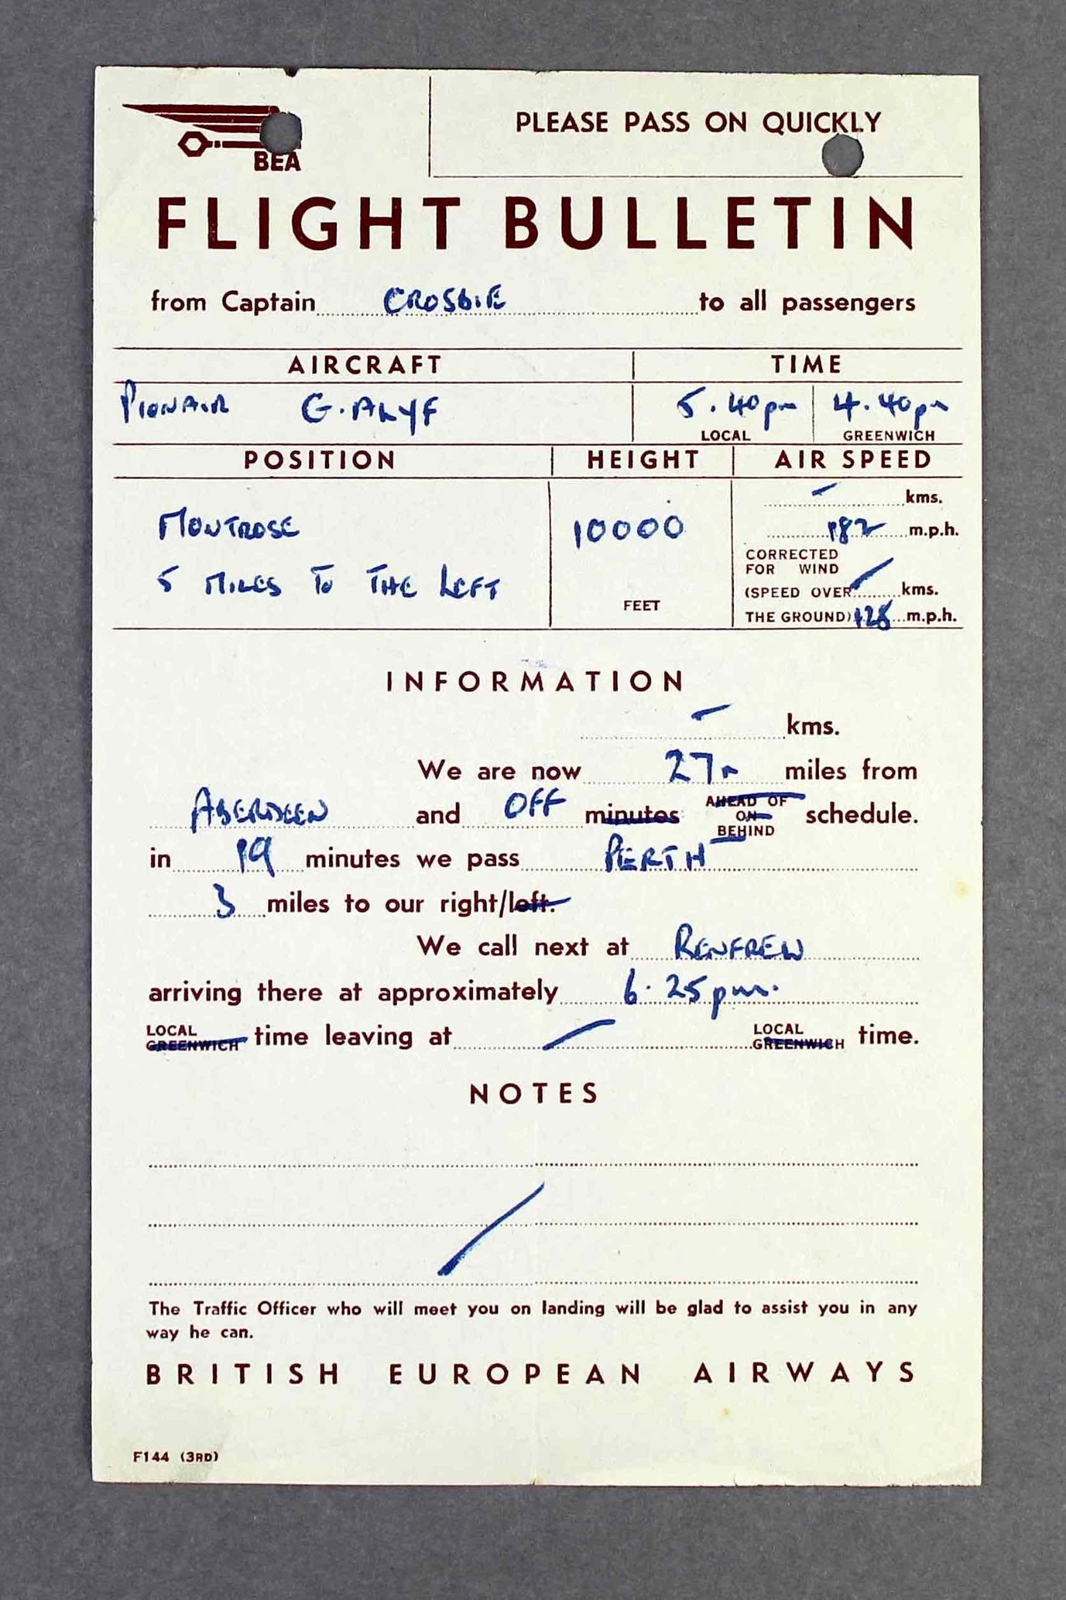 BEA
PLEASE PASS ON QUICKLY
FLIGHT BULLETIN
from Captain CROSBIE to all passengers
AIRCRAFT TIME
PIONAIR G.ALYF 5.40pm 4.40pm
LOCAL GREENWICH
POSITION HEIGHT AIR SPEED
kms.
MONTROSE 10000 182 m.p.h.
CORRECTED
FOR WIND
5 MILES TO THE LEFT (SPEED OVER kms.
FEET
THE GROUND) 128 m.p.h.
INFORMATION
kms.
We are now 27 miles from
ABERDEEN and OFF minutes AHEAD OF ON BEHIND schedule.
in 19 minutes we pass PERTH
3 miles to our right/left.
We call next at RENFREW
arriving there at approximately 6.25pm.
LOCAL GREENWICH time leaving at LOCAL GREENWICH time.
NOTES
The Traffic Officer who will meet you on landing will be glad to assist you in any
way he can.
BRITISH EUROPEAN AIRWAYS
F144 (3RD)